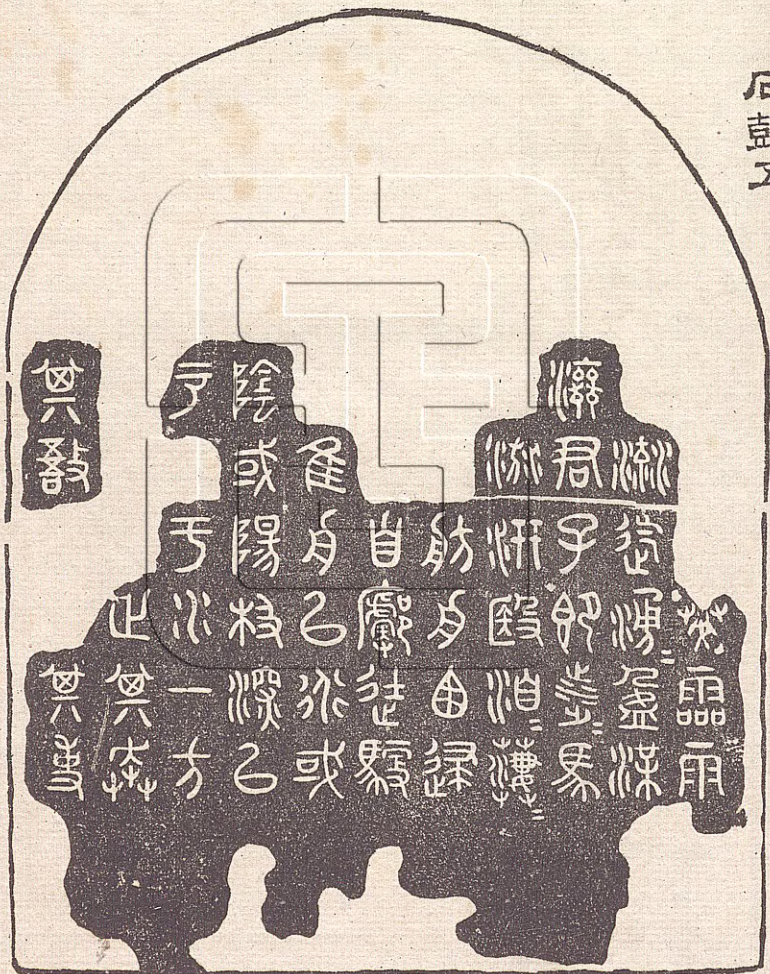 石鼓五
癸霝雨
流迄滂=盈渫
濟君子即涉=馬
流汧殹洎=淒=
舫舟囪逮
自廓徒馭
隹舟以衍或
陰或陽极深以
于水一方
止其奔
其敔其事